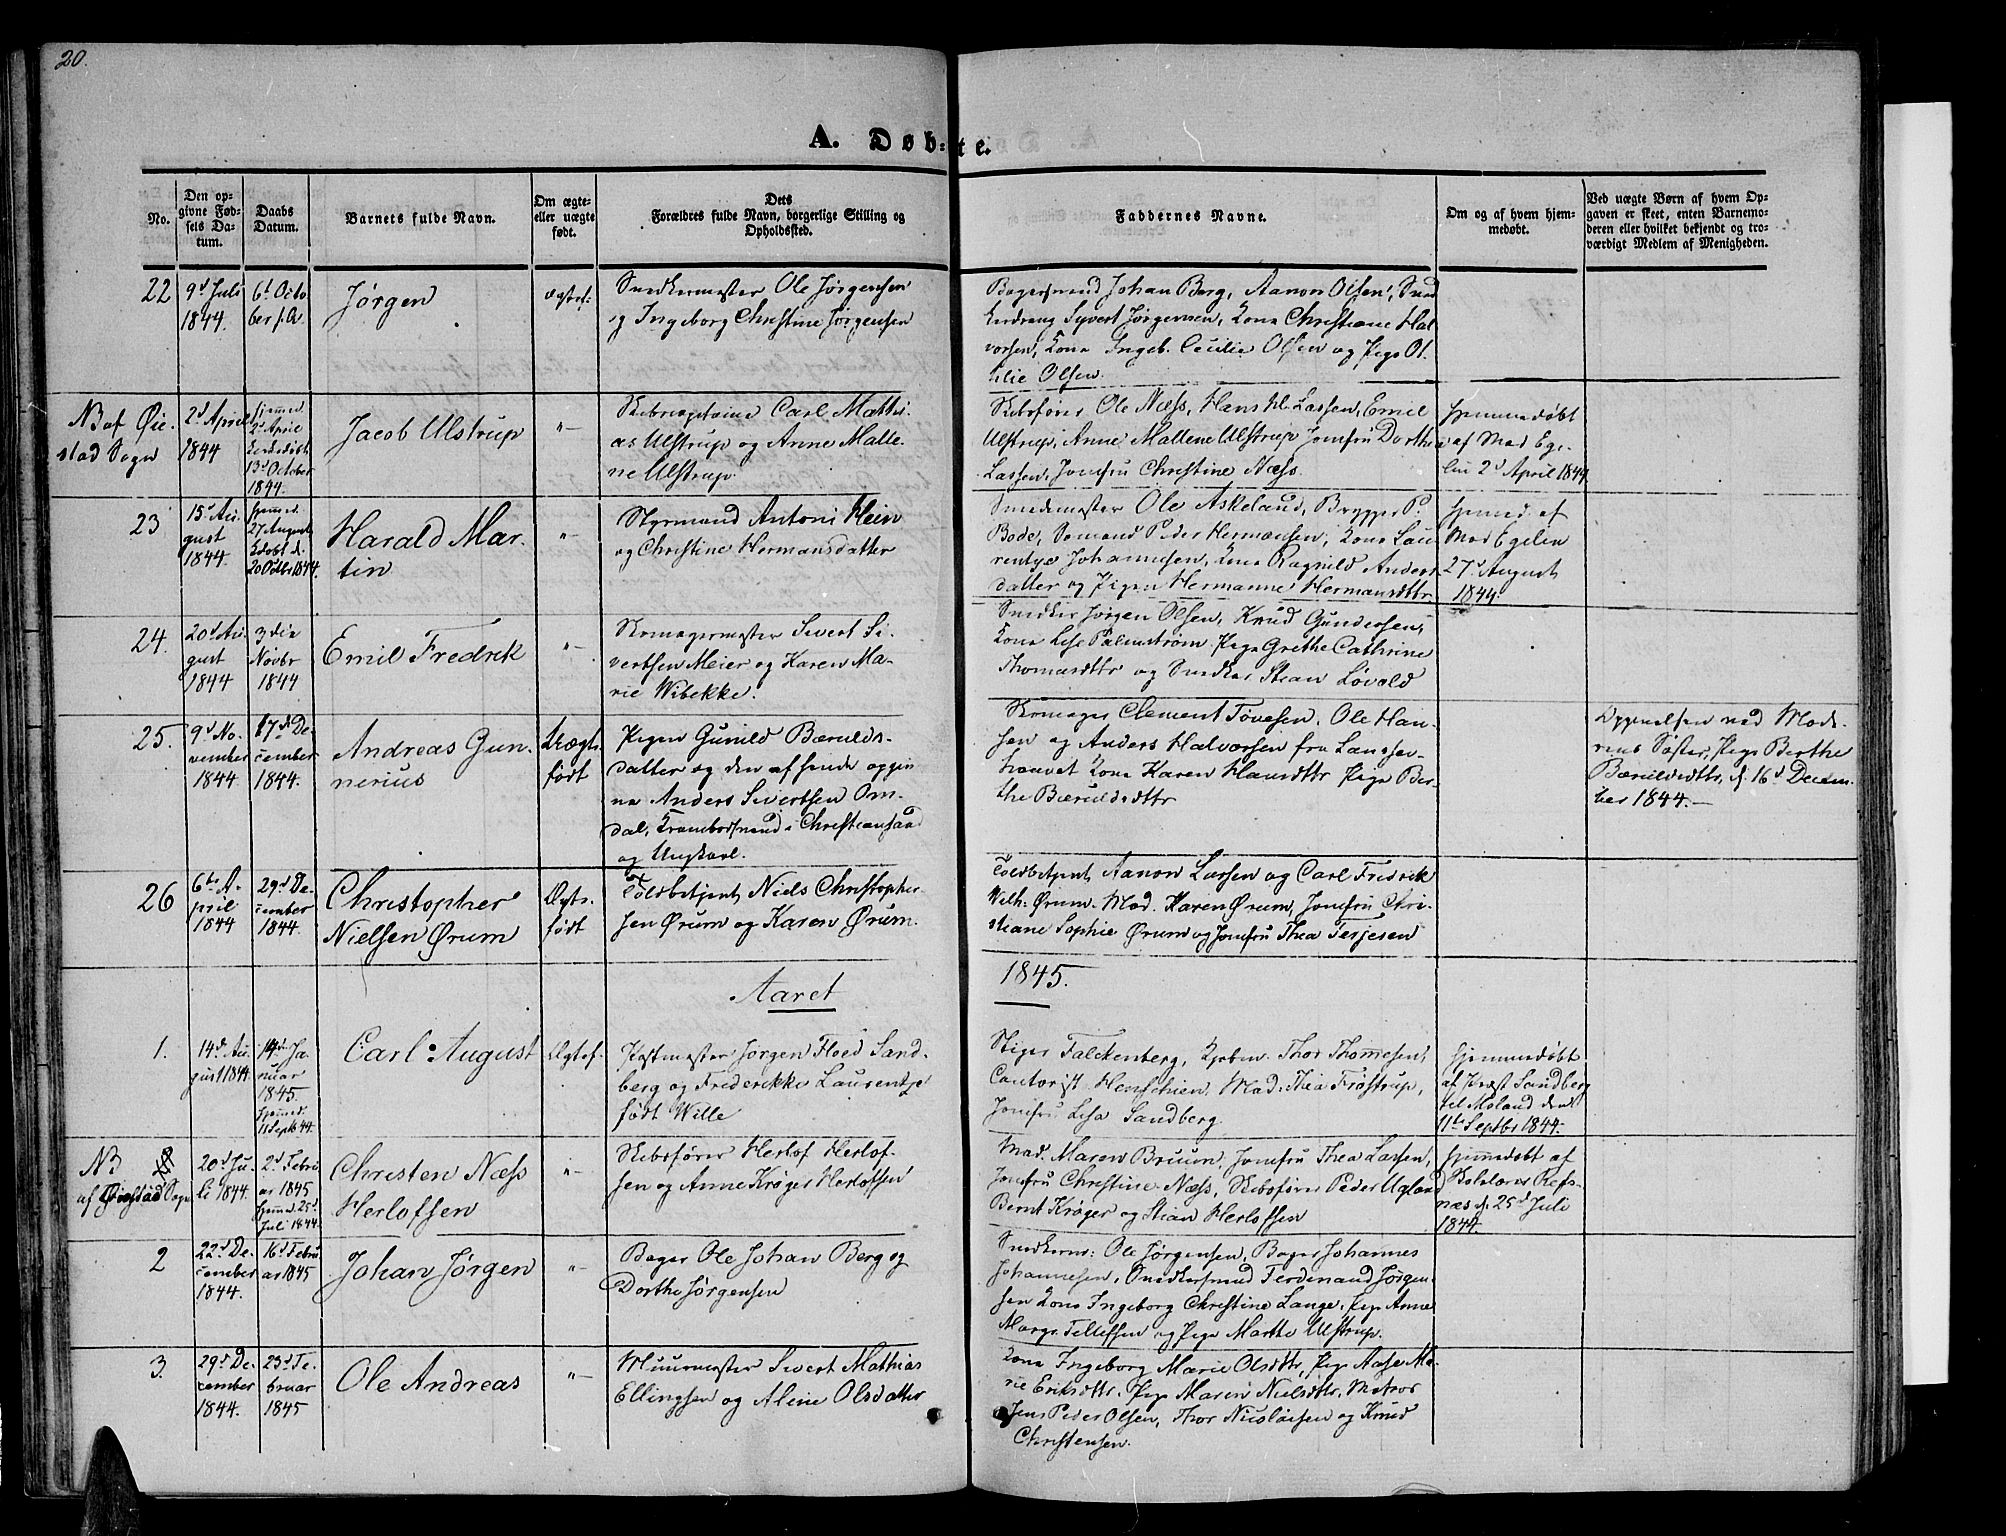 20.
A. Døb=te.
No.
Den op-
givne Fød-
sels Da-
tum.
Daabs
Datum.
Barnets fulde Navn.
Om ægte-
eller uægte
født.
Dets
Forældres fulde Navn, borgerlige Stilling og
Opholdssted.
Faddernes Navne.
Om og af hvem hjem-
medøbt.
Ved uægte Børn af hvem Op-
gaven er skeet, enten Barnemo-
deren eller hvilket bekjendt og tro-
værdigt Medlem af Menigheden.
22
9d Juli
1844.
6t Octo
ber s. A.
Jørgen
Ægtef:
Snedkermester Ole Jørgensen
og Ingeborg Christine Jørgensen
Bagersvend Johan Berg, Aanon Olsen, Sned
kerdreng Syvert Jørgensen, Kona Christiane Hal
vorsen, Kona Ingeb. Cecilie Olsen og Pige Ot
tilie Olsen.
NB af Øie-
stad Sogn
2d April
1844
hjemmed.
2d April
Kirkedøbt
13d October
1844.
Jacob Ulstrup
"
Skibscaptaine Carl Mathi-
as Ulstrup og Anne Malle-
ne Ulstrup
Skibsfører Ole Næss, Hans Hl. Lassen, Emil
Ulstrup, Anne Mallene Ulstrup Jomfru Dorthea
Lassen, Jomfru Christine Næss.
hjemmedøbt
af Mad Ege-
lin 2d April 1844
23
15d Au-
gust
1844.
hjemmed.
27 August
Kdøbt d.
20 Octbr 1844.
Harald Mar-
tin
"
Styrmand Antoni Hein
og Christine Hermansdatter
Smedemester Ole Askeland, Brygger P.
Bode, Sømand Peder Hermansen, Kona Lau-
rentze Johannesen, Kona Ragnild Anders
datter og Pigen Hermanne Hermansdttr
hjemmed. af
Mad Egelin
27d August
1844.
24.
20d Au-
gust
1844
3die
Novbr
1844
Emil Fredrik
"
Skomagermester Sivert Si-
vertsen Meier og Karen Ma-
rie Wibekke.
Snedker Jørgen Olsen, Knud Gundersen,
Kona Lise Palmstrøm Pige Grethe Cathrine
Thomasdttr og Snedker Stean Lovald
25.
9d No-
vember
1844
17d De-
cember
1844.
Andreas Gun-
nerius
Uægte
født
Pigen Gunild Bæruldsː
datter og den af hende opgiv
ne Anders Sivertsen Om-
dal, Krambodsvend i Christiansand
og Ungkarl.
Skomager Clement Tøvesen, Ole Han-
sen og Anders Halvorsen fra Langsev-
hauvet Kona Karen Hansdttr Pige Ber-
the Bæruldsdttr
Opgivelsen ved Mode-
rens Søster, Pige Berthe
Bæruldsdttr, d. 16d Decem-
ber 1844.—
26
6te A-
pril
1844
29d De-
cember
1844.
Christopher
Nielsen Ørum
Ægte-
født
Toldbetjent Niels Christopher-
sen Ørum og Karen Ørum.
Toldbetjent Aanon Larsen og Carl Fredrik
Wilh: Ørum. Mad. Karen Ørum, Jomfru Chri-
stiane Sophie Ørum og Jomfru Thea Terjesen
Aaret
1845.
1.
14d Au-
gust 1844
14de Ja-
nuar
1845.
hjemmed.
11 Septb 44.
Carl August
Ægtef.
Postmester Jørgen Floed Sand-
berg og Frederikke Laurentze
født Wille
Stiger Falckenberg, Kjøbm. Thor Thommesen,
Cantorist Henschien, Mad: Thea Frøstrup,
Jomfru Lisa Sandberg
hjemmedøbt
af Præst Sandberg
til Moland den
11te Septbr 1844.
NB
af Øiestad Sogn
20d Ju-
li 1844.
2d Febru
ar 1845
hjemmed. 25d
Juli 1844.
Christen Næss
Herlofsen
"
Skibsfører Herlof Herlof-
sen og Anne Krøger Herlofsen
Mad. Maren Bruun, Jomfru Thea Lassen,
Jomfru Christine Næss, Skibsfører Peder Ugland
Bernt Krøger og Stian Herlofsen
hjemmedøbt af
Refs-
næs d. 25d Juli
1844.
2
22d De-
cember
1844.
16d Febru
ar 1845
Johan Jørgen
"
Bager Ole Johan Berg og
Dorthe Jørgensen
Snedkerm: Ole Jørgensen, Bager Johannes
Johannesen, Snedkersvend Ferdinand Jørgen
sen Kona Ingeborg Christine Lange, Pige Anne
Margr. Tellefsen og Pige Marthe Ulstrup.
3.
29d De-
cember
1844.
23d Fe-
bruar
1845
Ole Andreas
"
Muurmester Sivert Mathias
Ellingsen og Alene Olsdatter
Kona Ingeborg Marie Olsdttr, Pige Aase Ma-
rie Eriksdttr. Pige Maren Nielsdttr. Matros
Jens Peder Olsen, Thor Nicolaisen og Knud
Christensen.